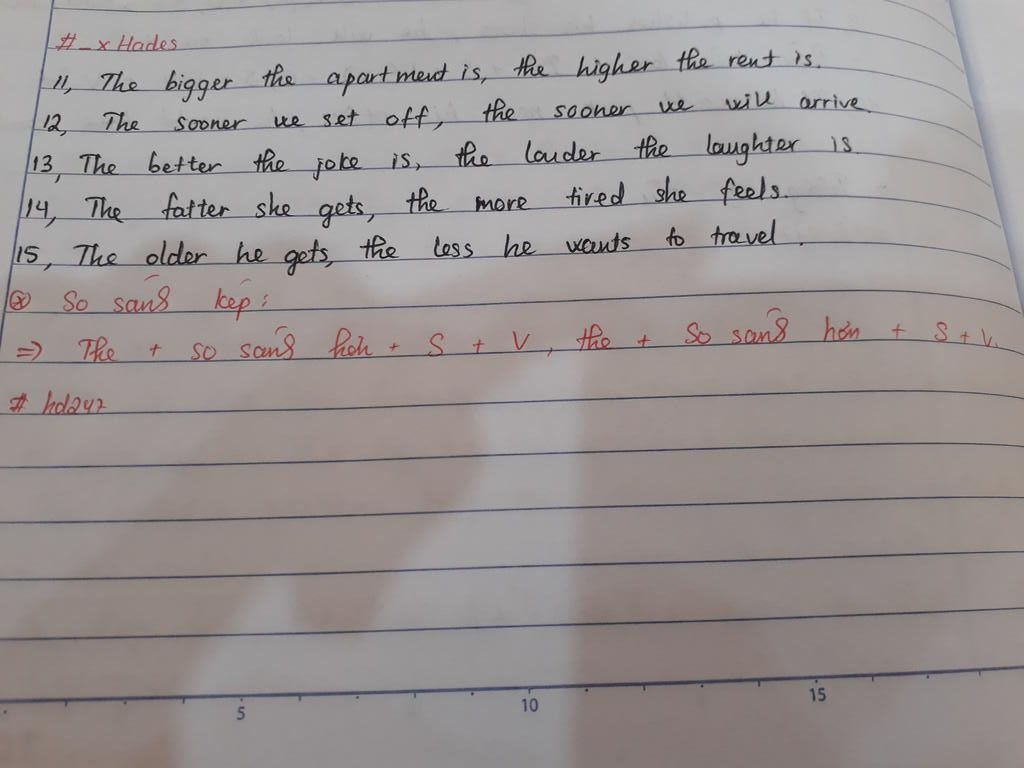 #_x Hades
11, The bigger the apartment is, the higher the rent is.
12, The sooner we set off, the sooner we will arrive
13, The better the joke is, the louder the laughter is
14, The fatter she gets, the more tired she feels.
15, The older he gets, the less he wants to travel.
⊗ So sánh kép:
=> The + so sánh hơn + S + V, the + So sánh hơn + S + V.
# hd247
5 10 15